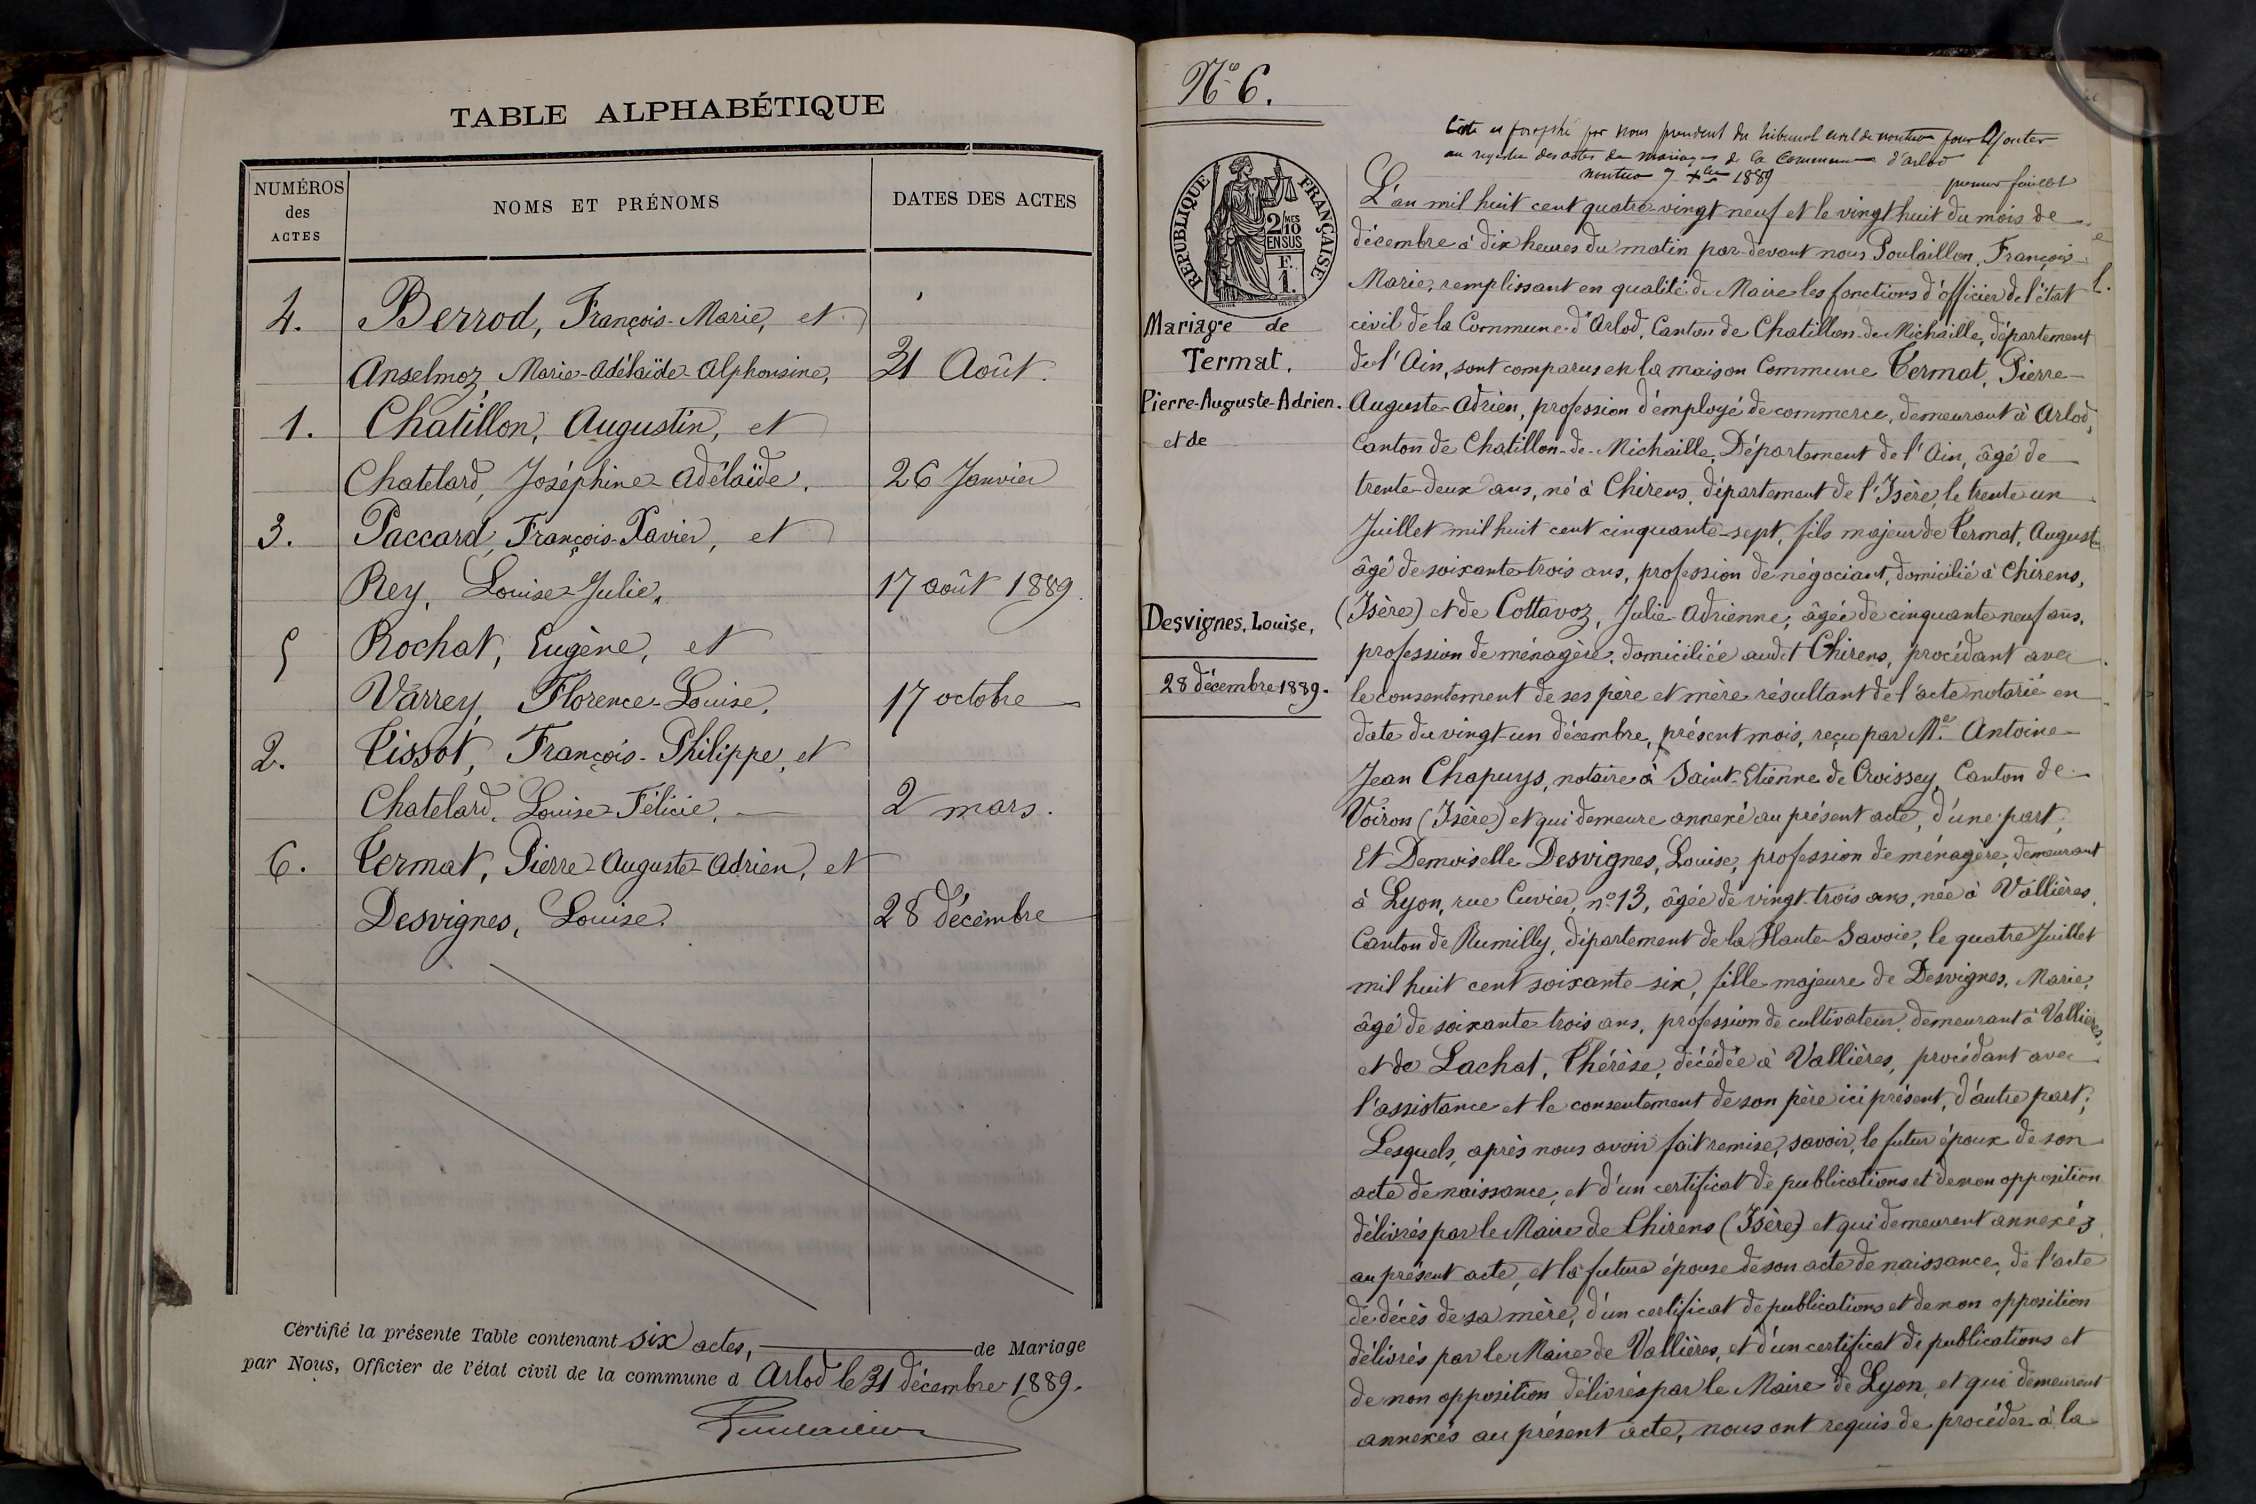 TABLE ALPHABÉTIQUE
NUMÉROS des ACTES
NOMS ET PRÉNOMS
DATES DES ACTES
4. Berrod, François-Marie, et
Anselmoz, Marie-Adélaïde-Alphonsine, 31 Août.
1. Chatillon, Augustin, et
Chatelard, Joséphine-Adélaïde. 26 Janvier
3. Paccard, François-Xavier, et
Rey, Louise-Julie, 17 août 1889.
5 Rochat, Eugène, et
Varrey, Florence-Louise, 17 octobre
2. Tissot, François-Philippe, et
Chatelard, Louise-Félicie, 2 mars.
6. Termat, Pierre-Auguste-Adrien, et
Desvignes, Louise. 28 décembre
Certifié la présente Table contenant six actes, de Mariage
par Nous, Officier de l'état civil de la commune d Arlod le 31 décembre 1889.
Poulaillon
N° 6.
Coté et paraphé par nous président du tribunal civil de nantua pour ajouter
au registre des actes de mariages de la Commune d'arlod
nantua 7 Xbre 1889
premier feuillet
RÉPUBLIQUE FRANÇAISE
2/10 MES
EN SUS
F.
1.
Mariage de
Termat,
Pierre-Auguste-Adrien.
et de
Desvignes, Louise,
28 décembre 1889.
L'an mil huit cent quatre-vingt neuf et le vingt huit du mois de
décembre à dix heures du matin par-devant nous Poulaillon, François-
Marie, remplissant en qualité de Maire les fonctions d'officier de l'état
civil de la Commune d'Arlod, Canton de Chatillon-de-Michaille, département
de l'Ain, sont comparus en la maison Commune Termat, Pierre-
Auguste-Adrien, profession d'employé de commerce, demeurant à Arlod,
Canton de Chatillon-de-Michaille, Département de l'Ain, âgé de
trente-deux ans, né à Chirens, département de l'Isère, le trente un
Juillet mil huit cent cinquante-sept, fils majeur de Termat, Auguste
âgé de soixante trois ans, profession de négociant, domicilié à Chirens,
(Isère) et de Cottavoz, Julie Adrienne, âgée de cinquante neuf ans,
profession de ménagère, domiciliée audit Chirens, procédant avec
le consentement de ses père et mère résultant de l'acte notarié en
date du vingt-un décembre, présent mois, reçu par Me. Antoine-
Jean Chapuys, notaire à Saint-Etienne de Croissey, Canton de
Voiron (Isère) et qui demeure annexé au présent acte, d'une part;
Et Demoiselle Desvignes, Louise, profession de ménagère, demeurant
à Lyon, rue Cuvier, n° 13, âgée de vingt-trois ans, née à Vallières,
Canton de Rumilly, département de la Haute-Savoie, le quatre Juillet
mil huit cent soixante-six, fille majeure de Desvignes, Marie,
âgé de soixante trois ans, profession de cultivateur, demeurant à Vallières,
et de Lachat, Thérèse, décédée à Vallières, procédant avec
l'assistance et le consentement de son père ici présent, d'autre part;
Lesquels, après nous avoir fait remise, savoir, le futur époux de son
acte de naissance, et d'un certificat de publications et de non opposition
délivrés par le Maire de Chirens (Isère) et qui demeurent annexés
au présent acte, et la future épouse de son acte de naissance, de l'acte
de décès de sa mère, d'un certificat de publications et de non opposition
délivrés par le Maire de Vallières, et d'un certificat de publications et
de non opposition délivrés par le Maire de Lyon, et qui demeurent
annexés au présent acte, nous ont requis de procéder à la